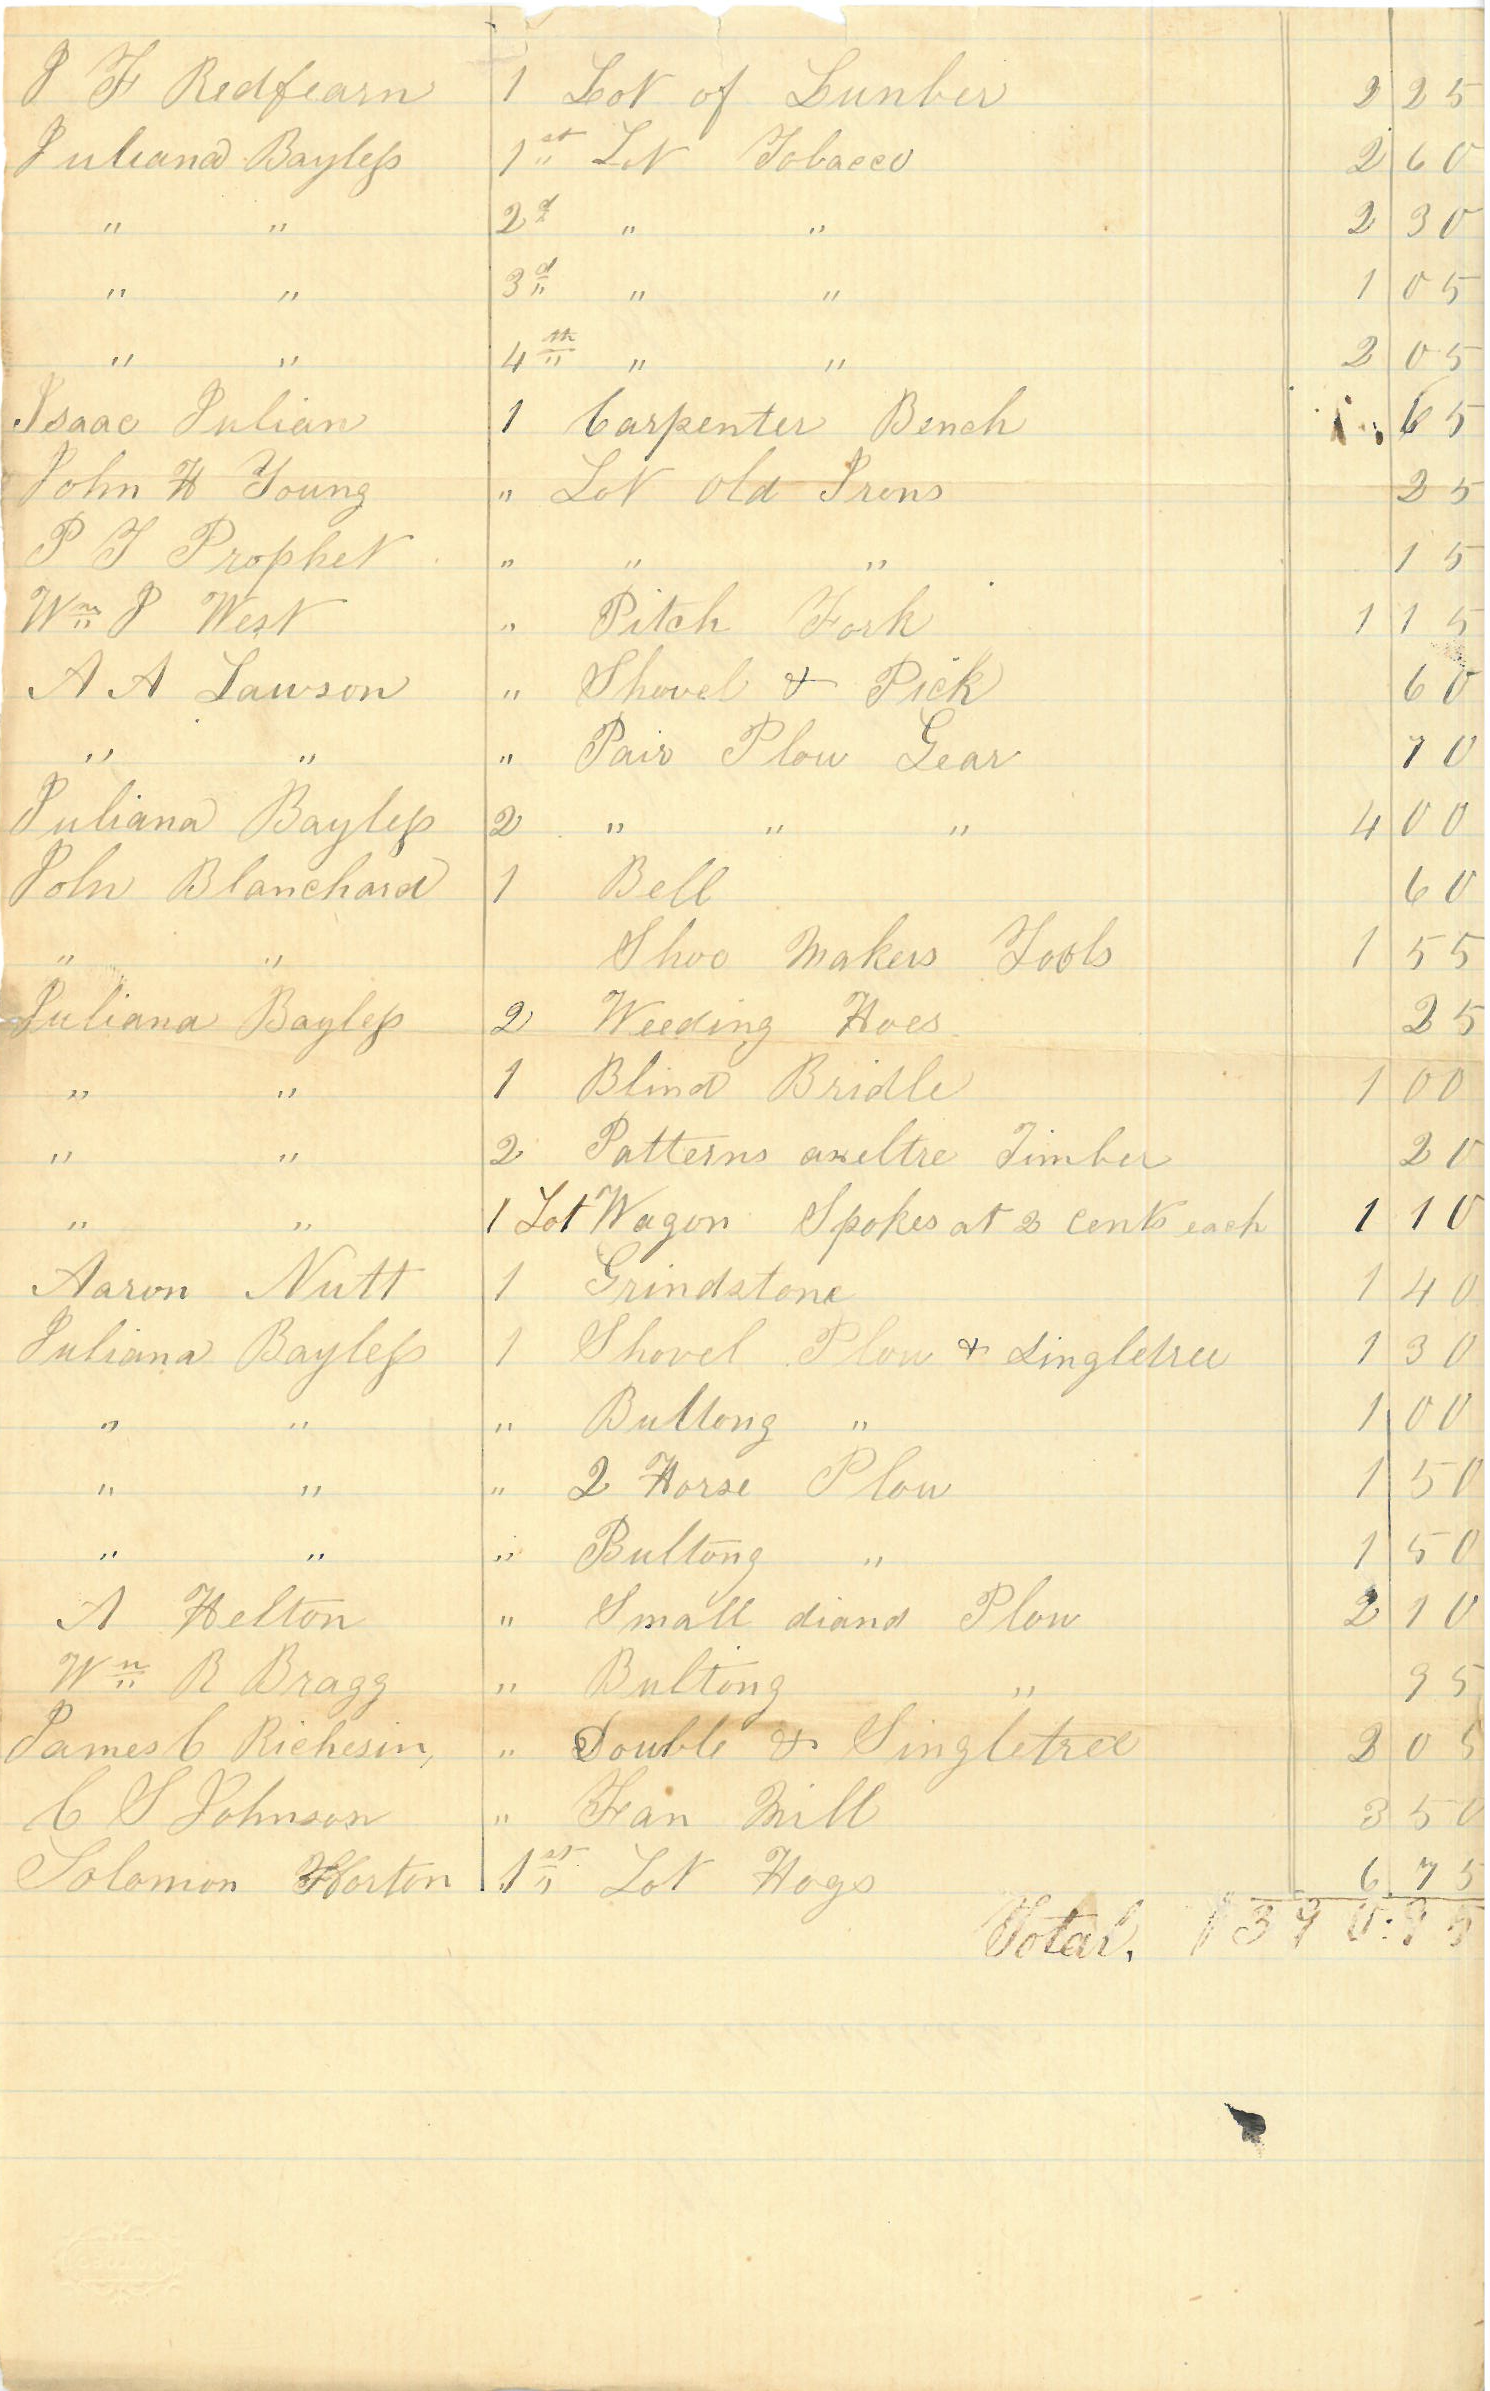 J F Redfearn 1 Lot of Lunber 2 25
Juliana Bayless 1st Lot Tobacco 2 60
" " 2d " " 2 30
" " 3d " " 1 05
" " 4th " " 2 05
Isaac Julian 1 Carpenter Bench 65
John H Young " Lot old Irons 25
P T Prophet " " " 15
Wm J West " Pitch Fork 1 15
A A Lawson " Shovel & Pick 60
" " " Pair Plow Gear 70
Juliana Bayless 2 " " " 4 00
John Blanchard 1 Bell 60
" " Shoo Makers Tools 1 55
Juliana Bayless 2 Weeding Hoes 25
" " 1 Blind Bridle 1 00
" " 2 Patterns axeltre Timber 20
" " 1 Lot Wagon Spokes at 2 cents each 1 10
Aaron Nutt 1 Grindstone 1 40
Juliana Bayless 1 Shovel Plow & Singletree 1 30
" " " Bultong " 1 00
" " " 2 Horse Plow 1 50
" " " Bultong " 1 50
A Helton " Small diand Plow 2 10
Wm R Bragg " Bultong " 95
James C Richesin, " Double & Singletree 2 05
C S Johnson " Fan Mill 3 50
Solomon Horton 1st Lot Hogs 6 75
Total,